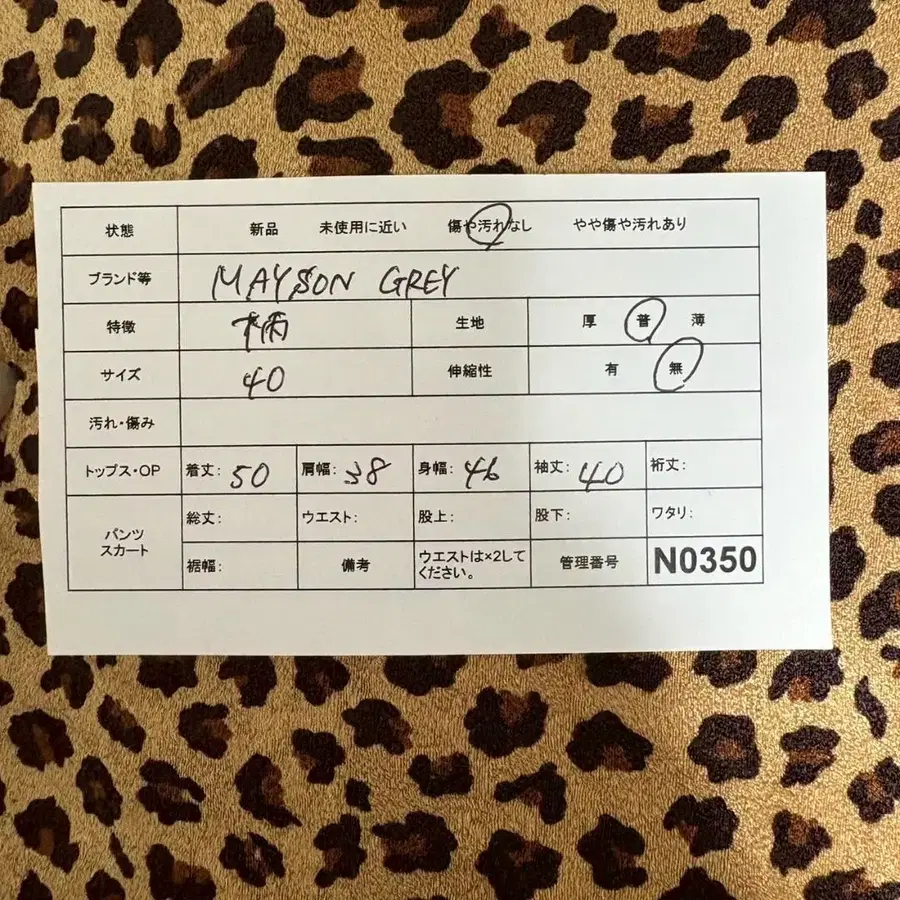 状態 新品 未使用に近い 傷や汚れなし やや傷や汚れあり
ブランド等 MAYSON GREY
特徴 柄 生地 厚 普 薄
サイズ 40 伸縮性 有 無
汚れ・傷み
トップス・OP 着丈: 50 肩幅: 38 身幅: 46 袖丈: 40 裄丈:
パンツ スカート 総丈: ウエスト: 股上: 股下: ワタリ:
裾幅: 備考 ウエストは×2してください。 管理番号 N0350